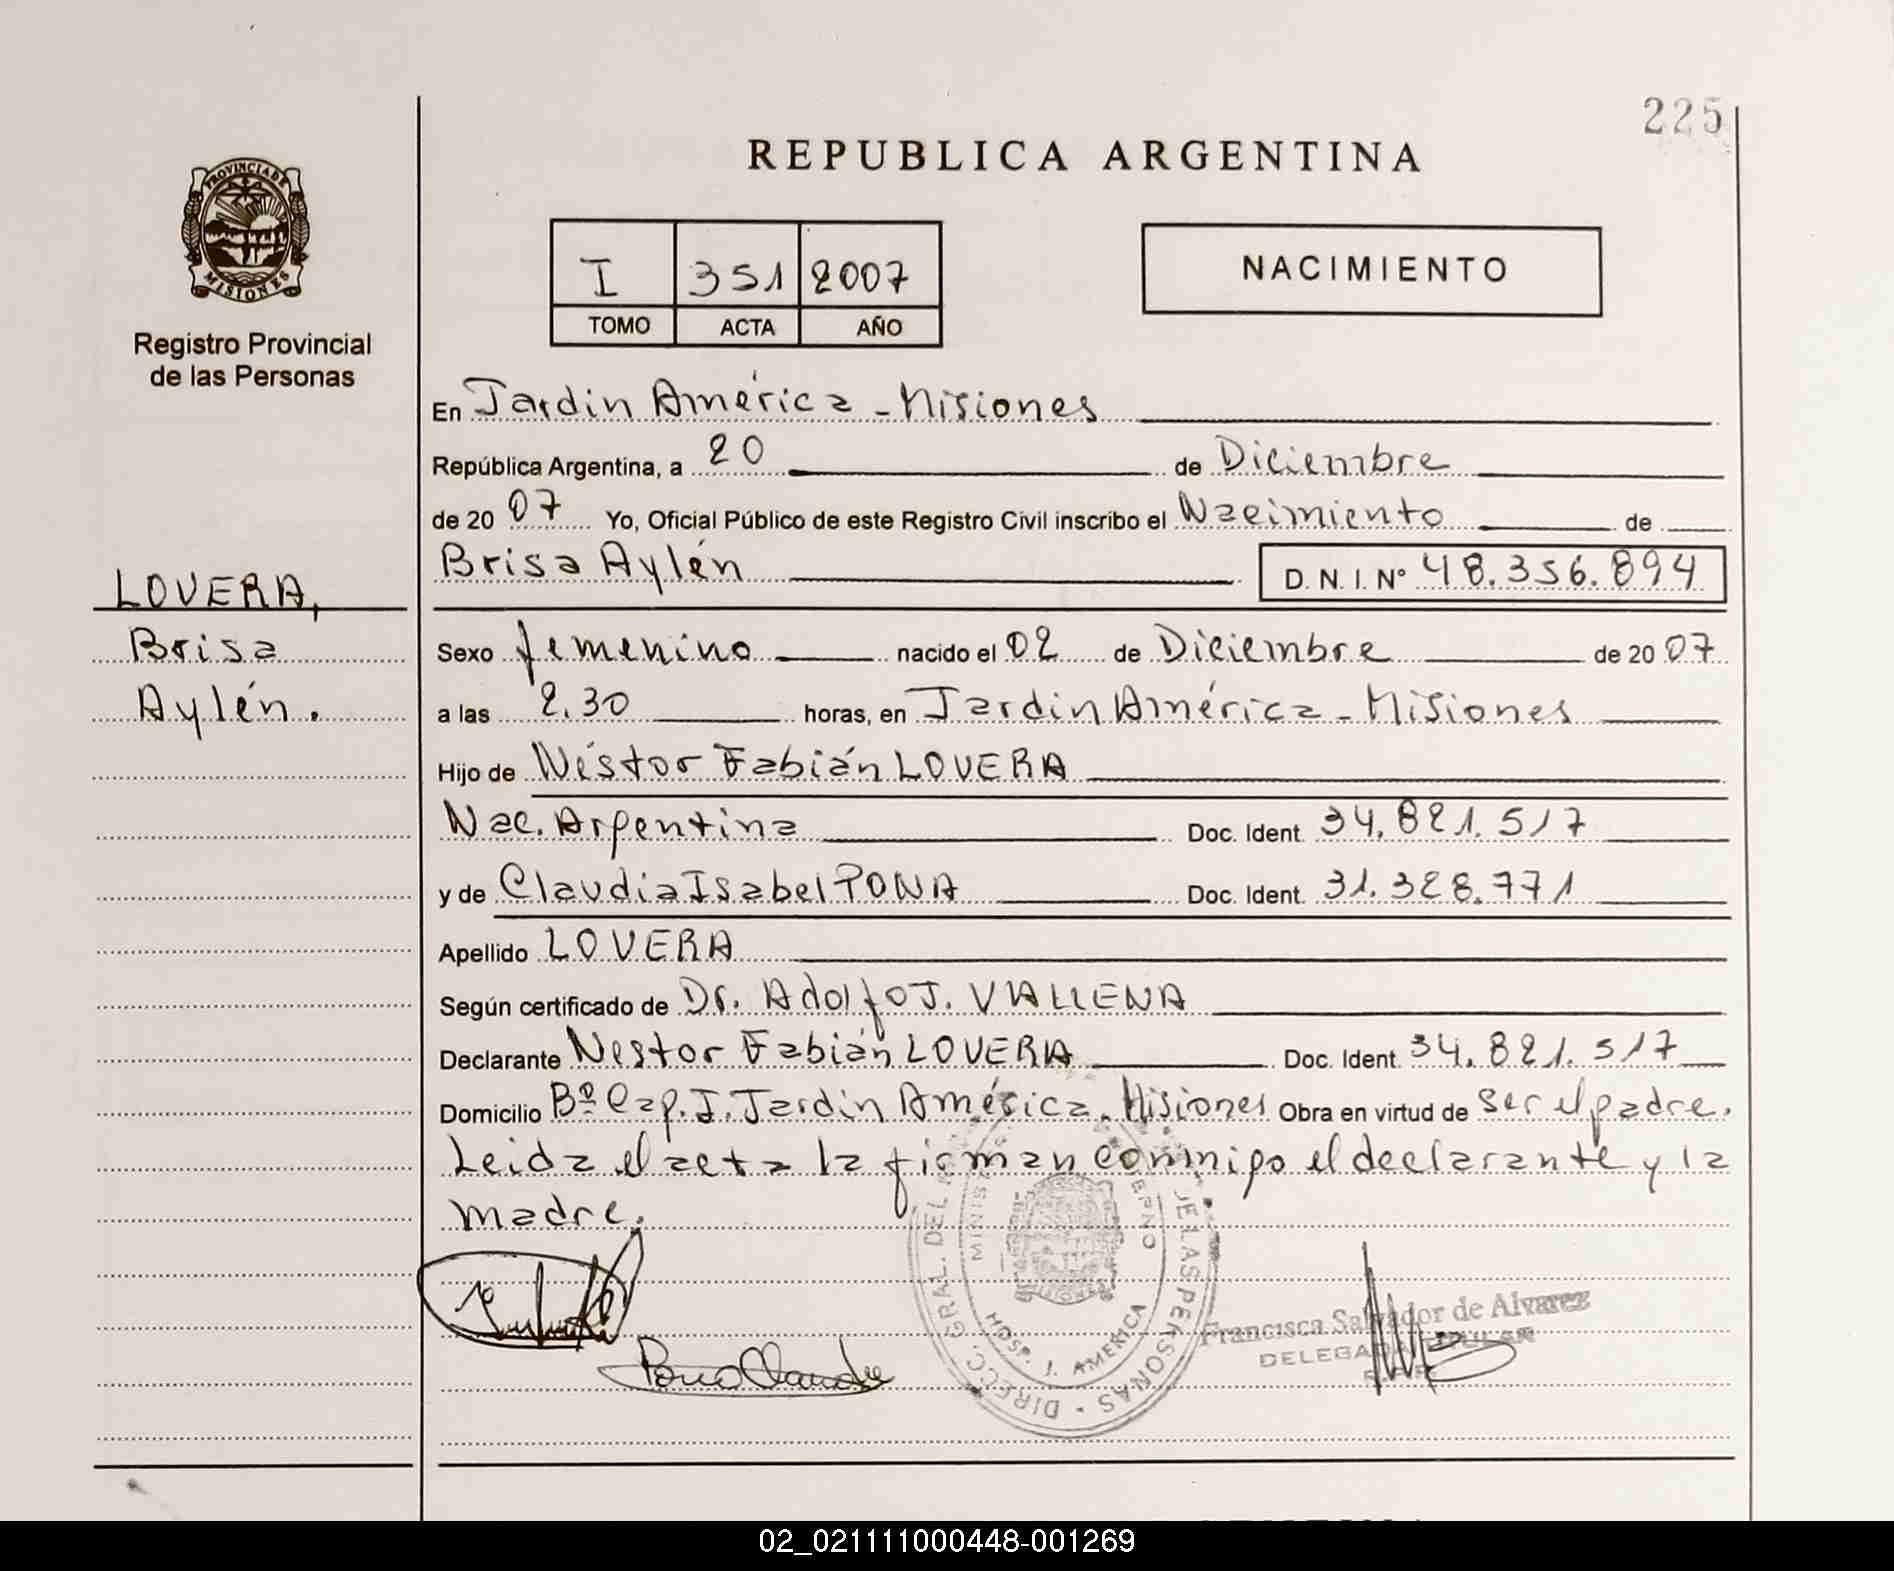 225
PROVINCIA DE
MISIONES
Registro Provincial
de las Personas
LOVERA,
Brisa
Aylén.
REPUBLICA ARGENTINA
I 351 2007
TOMO ACTA AÑO
NACIMIENTO
En Jardin América - Misiones
República Argentina, a 20 de Diciembre
de 2007 Yo, Oficial Público de este Registro Civil inscribo el Nacimiento de
Brisa Aylén D. N. I. Nº 48.356.894
Sexo femenino nacido el 02 de Diciembre de 2007
a las 2.30 horas, en Jardin América - Misiones
Hijo de Néstor Fabián LOVERA
Nac. Argentina Doc. Ident. 34.821.517
y de Claudia Isabel PONA Doc. Ident. 31.328.771
Apellido LOVERA
Según certificado de Dr. Adolfo J. VIALLENA
Declarante Nestor Fabián LOVERA Doc. Ident. 34.821.517
Domicilio Bº Cap. I. Jardin América. Misiones Obra en virtud de ser el padre.
Leida el acta la firman conmigo el declarante y la
madre.
DIREC. GRAL. DEL DE LAS PERSONAS
HOSP. J. AMERICA
Francisca Salvador de Alvarez
DELEGADA TITULAR
02_021111000448-001269